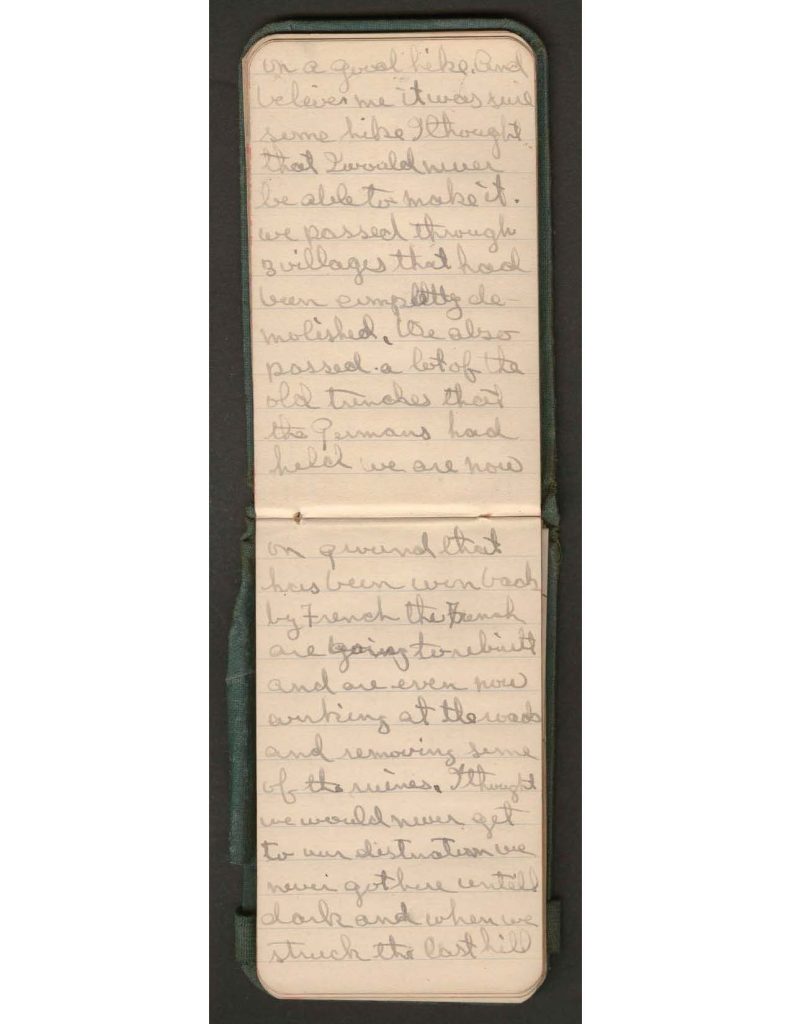 on a good hike. And
believe me it was sure
some hike I thought
that I would never
be able to make it.
we passed through
3 villages that had
been completly de-
molished. We also
passed a lot of the
old trenches that
the Germans had
held we are now
on ground that
has been won back
by French the French
are going to rebuilt
and are even now
working at the roads
and removing some
of the ruines. I thought
we would never get
to our distnation we
never got here untill
dark and when we
struck the last hill